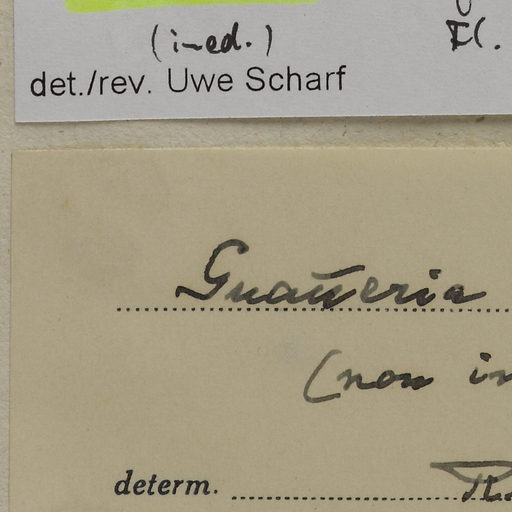 (ined.) Fl.
det./rev. Uwe Scharf
Guatteria
(non in
determ.